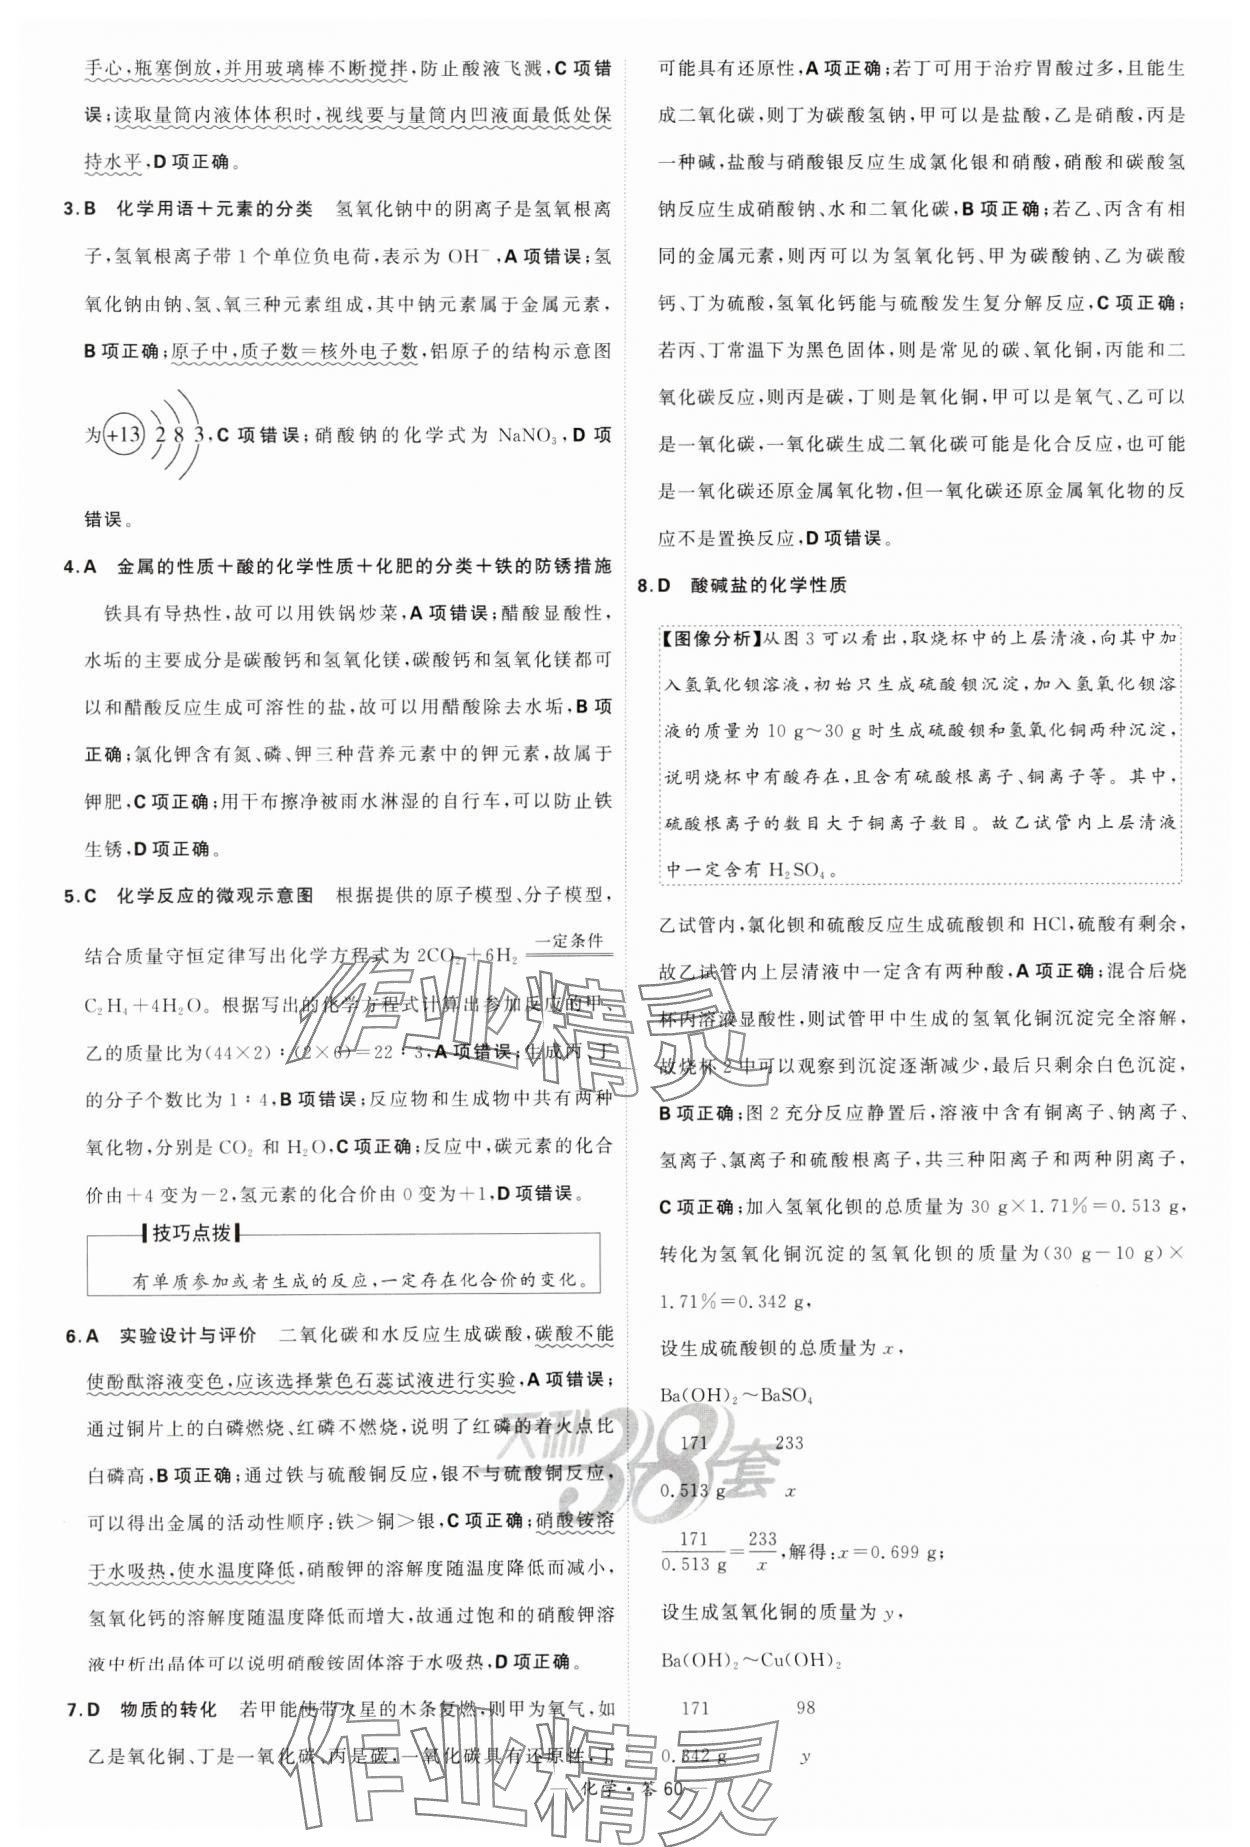 手心,瓶塞倒放,并用玻璃棒不断搅拌,防止酸液飞溅,C项错
误;读取量筒内液体体积时,视线要与量筒内凹液面最低处保
持水平,D项正确。
3.B 化学用语＋元素的分类 氢氧化钠中的阴离子是氢氧根离
子,氢氧根离子带1个单位负电荷,表示为OH⁻,A项错误;氢
氧化钠由钠、氢、氧三种元素组成,其中钠元素属于金属元素,
B项正确;原子中,质子数＝核外电子数,铝原子的结构示意图
为 +13 2 8 3,C项错误;硝酸钠的化学式为NaNO₃,D项
错误。
4.A 金属的性质＋酸的化学性质＋化肥的分类＋铁的防锈措施
铁具有导热性,故可以用铁锅炒菜,A项错误;醋酸显酸性,
水垢的主要成分是碳酸钙和氢氧化镁,碳酸钙和氢氧化镁都可
以和醋酸反应生成可溶性的盐,故可以用醋酸除去水垢,B项
正确;氯化钾含有氮、磷、钾三种营养元素中的钾元素,故属于
钾肥,C项正确;用干布擦净被雨水淋湿的自行车,可以防止铁
生锈,D项正确。
5.C 化学反应的微观示意图 根据提供的原子模型、分子模型,
结合质量守恒定律写出化学方程式为2CO₂＋6H₂ 一定条件
C₂H₄＋4H₂O。根据写出的化学方程式计算出参加反应的甲、
乙的质量比为(44×2)∶(2×6)＝22∶3,A项错误;生成丙、丁
的分子个数比为1∶4,B项错误;反应物和生成物中共有两种
氧化物,分别是CO₂和H₂O,C项正确;反应中,碳元素的化合
价由＋4变为－2,氢元素的化合价由0变为＋1,D项错误。
技巧点拨
有单质参加或者生成的反应,一定存在化合价的变化。
6.A 实验设计与评价 二氧化碳和水反应生成碳酸,碳酸不能
使酚酞溶液变色,应该选择紫色石蕊试液进行实验,A项错误;
通过铜片上的白磷燃烧、红磷不燃烧,说明了红磷的着火点比
白磷高,B项正确;通过铁与硫酸铜反应,银不与硫酸铜反应,
可以得出金属的活动性顺序:铁＞铜＞银,C项正确;硝酸铵溶
于水吸热,使水温度降低,硝酸钾的溶解度随温度降低而减小,
氢氧化钙的溶解度随温度降低而增大,故通过饱和的硝酸钾溶
液中析出晶体可以说明硝酸铵固体溶于水吸热,D项正确。
7.D 物质的转化 若甲能使带火星的木条复燃,则甲为氧气,如
乙是氧化铜、丁是一氧化碳、丙是碳,一氧化碳具有还原性,丁
可能具有还原性,A项正确;若丁可用于治疗胃酸过多,且能生
成二氧化碳,则丁为碳酸氢钠,甲可以是盐酸,乙是硝酸,丙是
一种碱,盐酸与硝酸银反应生成氯化银和硝酸,硝酸和碳酸氢
钠反应生成硝酸钠、水和二氧化碳,B项正确;若乙、丙含有相
同的金属元素,则丙可以为氢氧化钙、甲为碳酸钠、乙为碳酸
钙、丁为硫酸,氢氧化钙能与硫酸发生复分解反应,C项正确;
若丙、丁常温下为黑色固体,则是常见的碳、氧化铜,丙能和二
氧化碳反应,则丙是碳,丁则是氧化铜,甲可以是氧气、乙可以
是一氧化碳,一氧化碳生成二氧化碳可能是化合反应,也可能
是一氧化碳还原金属氧化物,但一氧化碳还原金属氧化物的反
应不是置换反应,D项错误。
8.D 酸碱盐的化学性质
【图像分析】从图3可以看出,取烧杯中的上层清液,向其中加
入氢氧化钡溶液,初始只生成硫酸钡沉淀,加入氢氧化钡溶
液的质量为10 g～30 g时生成硫酸钡和氢氧化铜两种沉淀,
说明烧杯中有酸存在,且含有硫酸根离子、铜离子等。其中,
硫酸根离子的数目大于铜离子数目。故乙试管内上层清液
中一定含有H₂SO₄。
乙试管内,氯化钡和硫酸反应生成硫酸钡和HCl,硫酸有剩余,
故乙试管内上层清液中一定含有两种酸,A项正确;混合后烧
杯内溶液显酸性,则试管甲中生成的氢氧化铜沉淀完全溶解,
故烧杯2中可以观察到沉淀逐渐减少,最后只剩余白色沉淀,
B项正确;图2充分反应静置后,溶液中含有铜离子、钠离子、
氢离子、氯离子和硫酸根离子,共三种阳离子和两种阴离子,
C项正确;加入氢氧化钡的总质量为30 g×1.71％＝0.513 g,
转化为氢氧化铜沉淀的氢氧化钡的质量为(30 g－10 g)×
1.71％＝0.342 g,
设生成硫酸钡的总质量为x,
Ba(OH)₂～BaSO₄
171 233
0.513 g x
171/0.513 g＝233/x,解得:x＝0.699 g;
设生成氢氧化铜的质量为y,
Ba(OH)₂～Cu(OH)₂
171 98
0.342 g y
化学·答60
作业精灵
天利38套
作业精灵